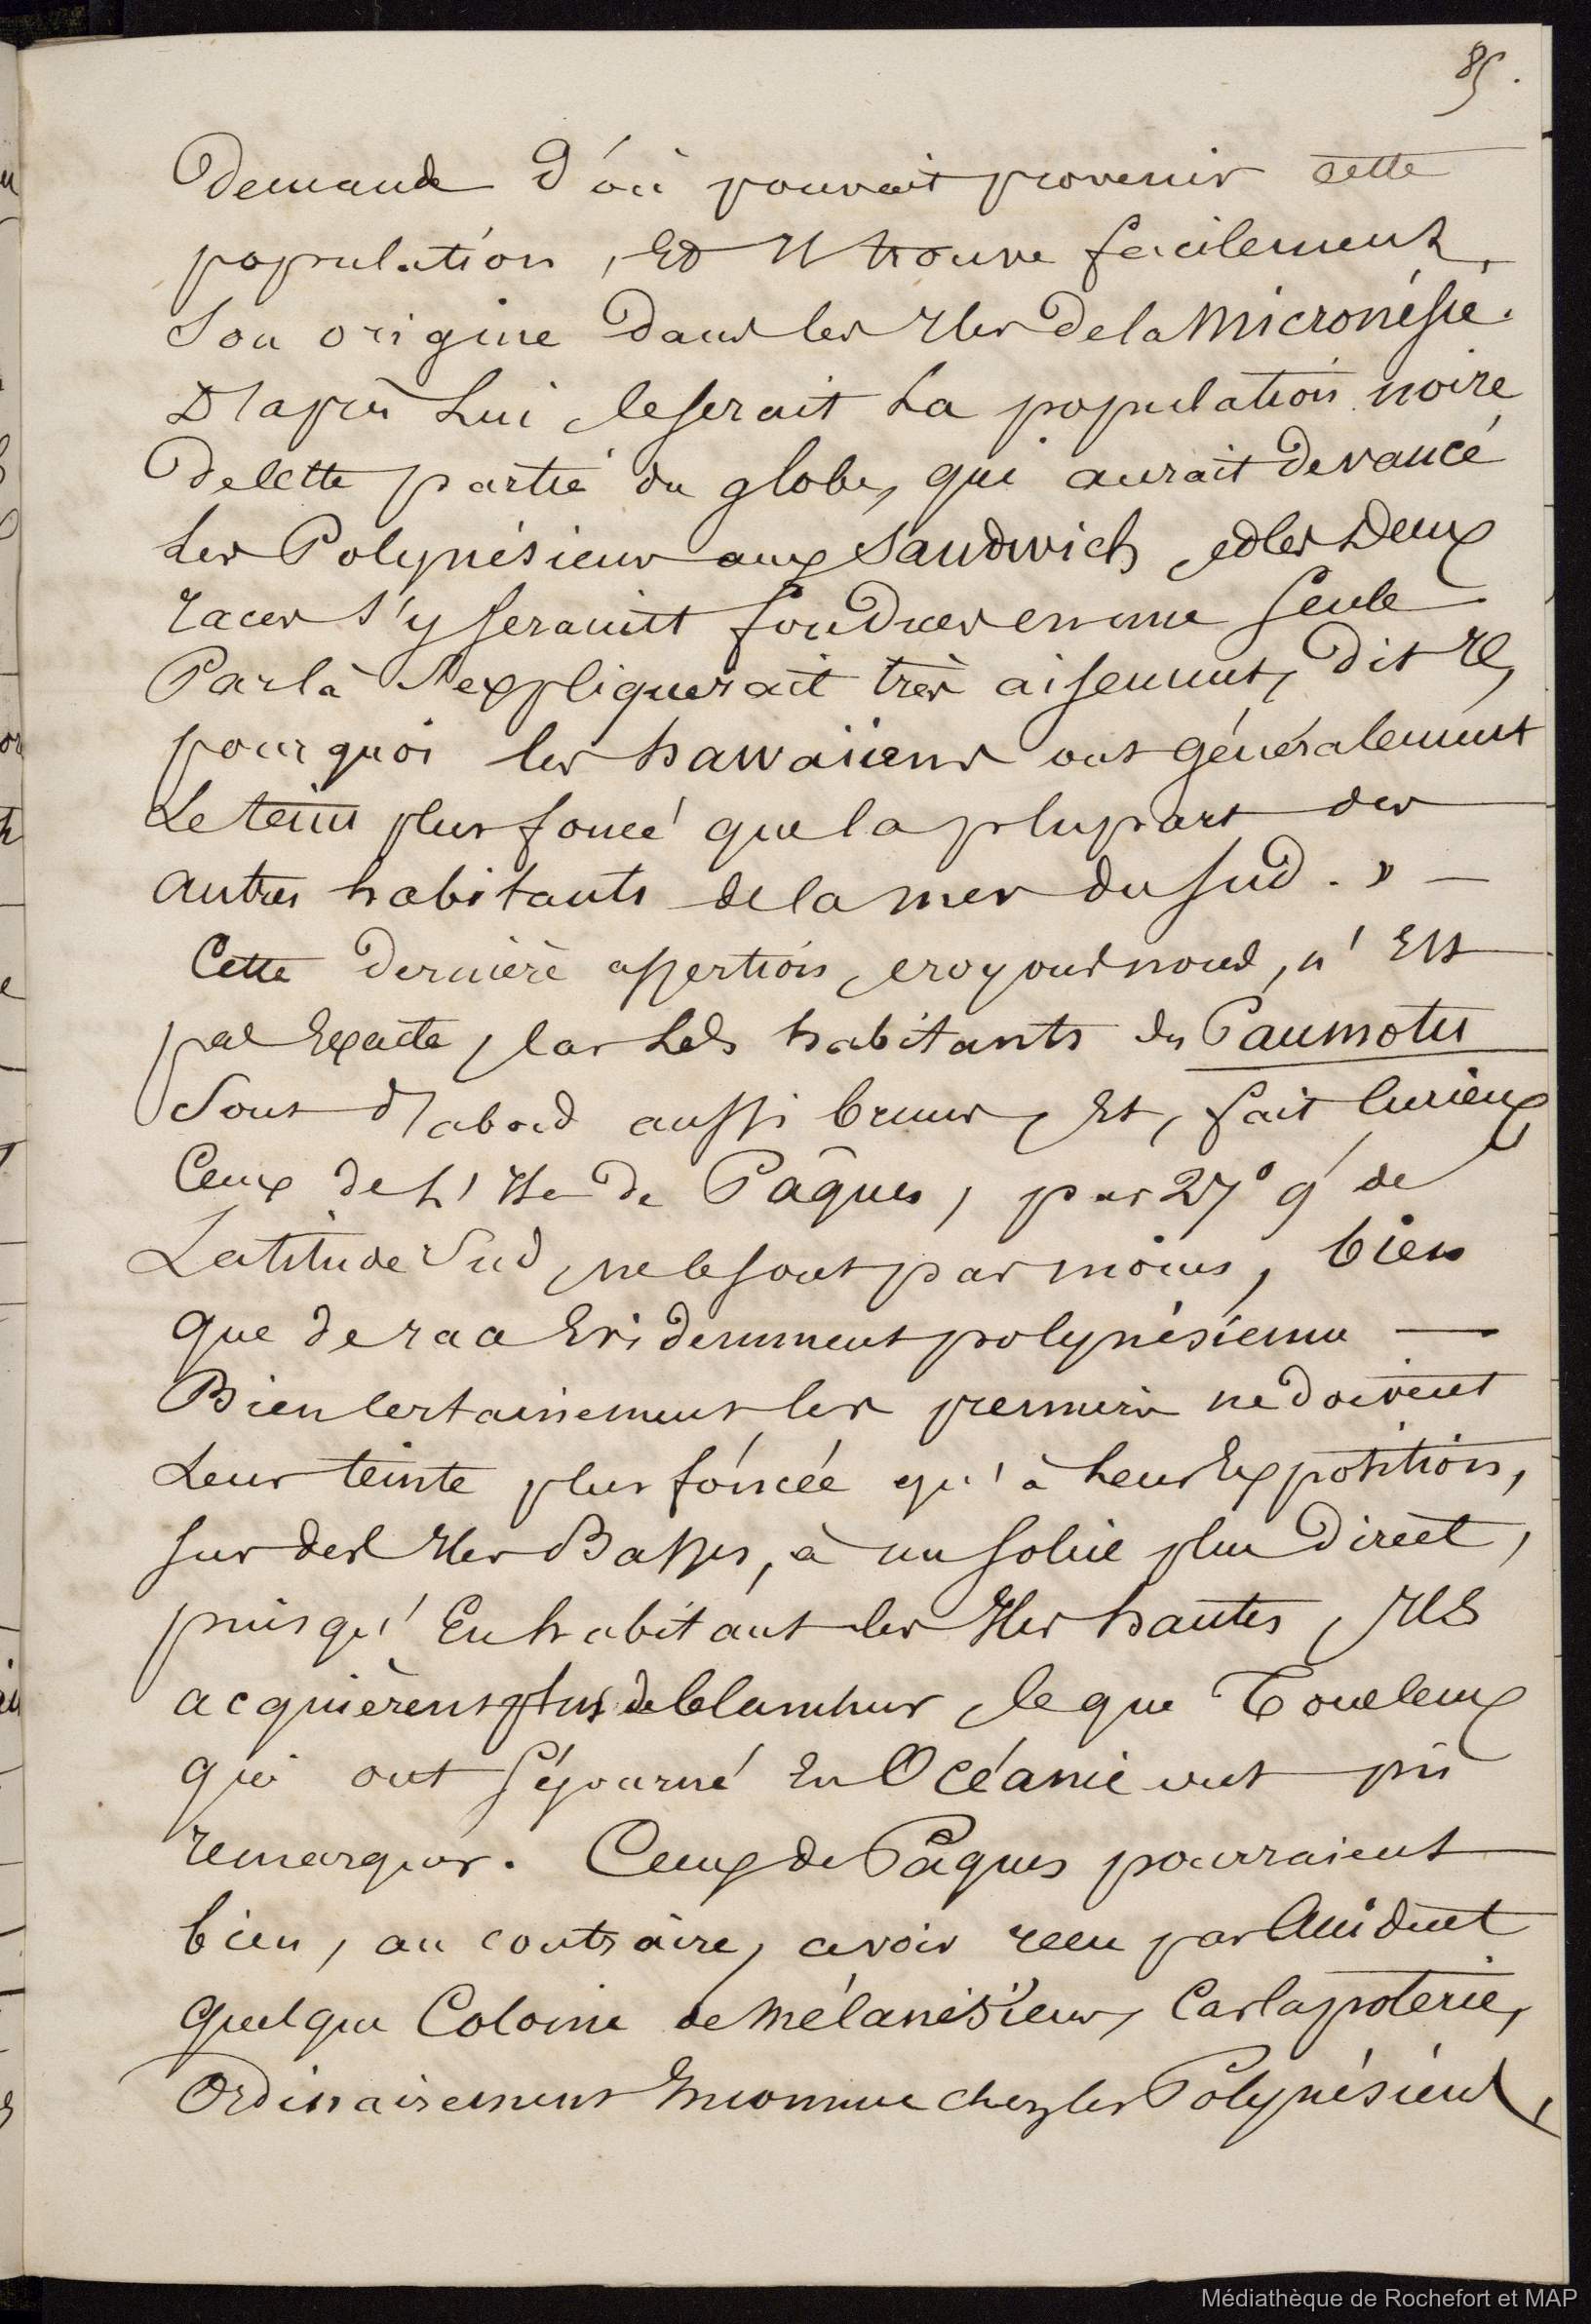 85.
Demande d'où pouvait provenir cette
population, Et Il trouve facilement,
Son origine dans les Iles de la Micronésie.
D'après Lui ce serait La population noire
de cette partie du globe, qui aurait devancé
Les Polynésiens aux Sandwich et les Deux
races s'y seraient fondues en une seule
Par là s'expliquerait très aisement, dit Il,
pourquoi les hawaiiens ont généralement
Le teint plus foncé que la plupart des
autres habitants de la mer du sud. » —
Cette dernière assertion, croyons nous, n'Est
pas Exacte, car Les habitants des Paumotus
Sont d'abord aussi bruns, Et, fait curieux
Ceux de L'Ile de Pâques, par 27° 9' de
Latitude Sud, ne le sont pas moins, bien
que de race Evidemment polynésienne —
Bien certainement les premiers ne doivent
Leur teinte plus foncée qu'à Leur Exposition,
sur des Iles Basses, à un soleil plus Direct,
puisqu'En habitant les Iles hautes, Ils
acquièrent plus de blancheur, ce que Tous ceux
qui ont séjourné En Océanie ont pû
remarquer. Ceux de Pâques pourraient
bien, au contraire, avoir reçu par Accident
quelque Colonie de Mélanésiens, Car la poterie,
Ordinairement Inconnue chez les Polynésiens,
Médiathèque de Rochefort et MAP